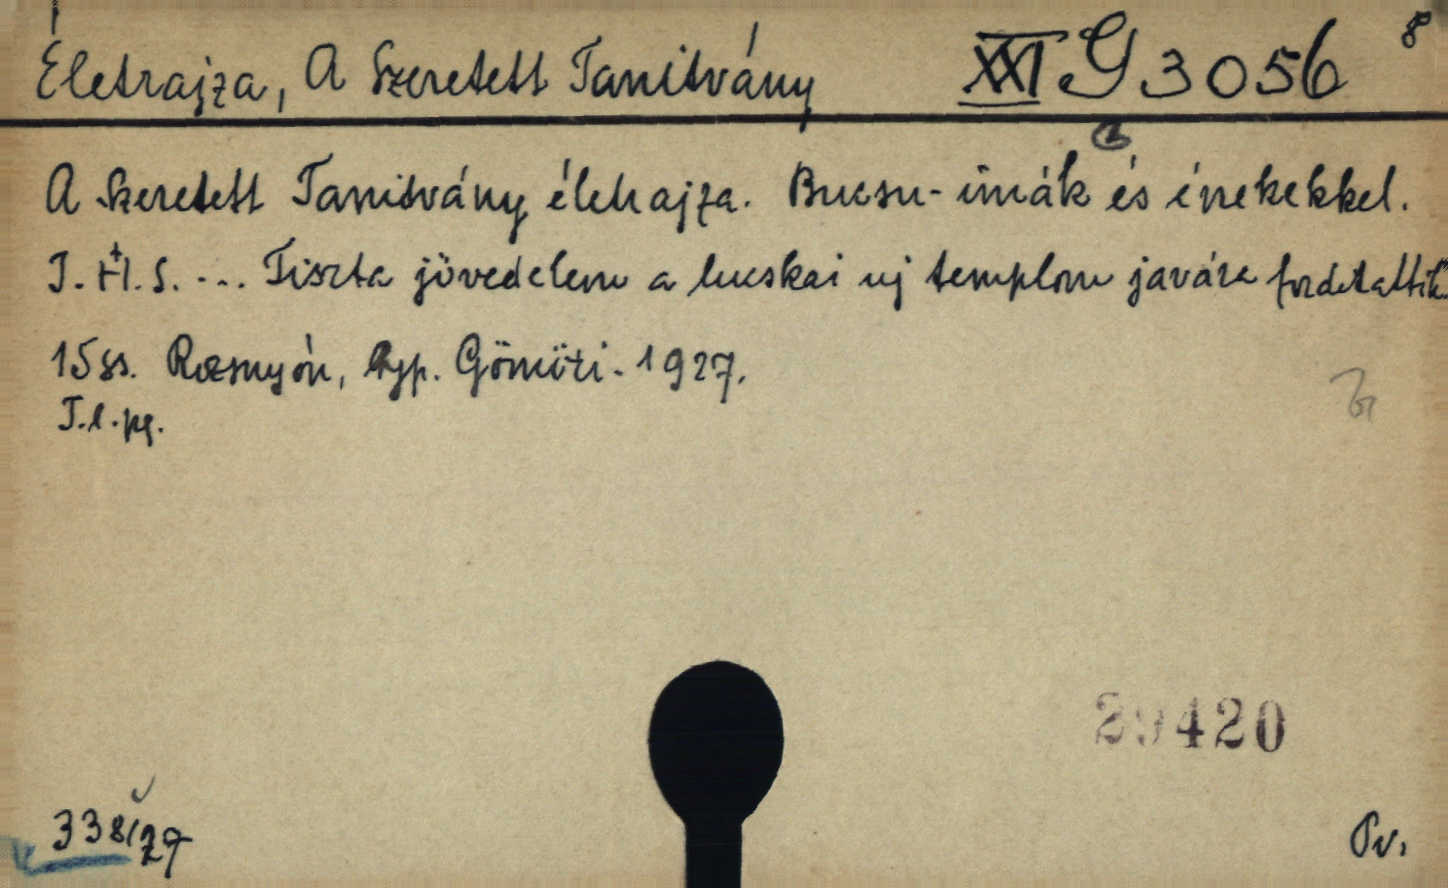 Életrajza, A Szeretett Tanitvány XXI G 3056 8
A Szeretett Tanitvány életrajza. Bucsu-imák és énekekkel.
I.H.S. ... Tiszta jövedelem a lucskai uj templom javára fordittatik.
15 ss. Rozsnyón, typ. Gömöri. 1927.
T.l.pg.
29420
338/27
Pv.